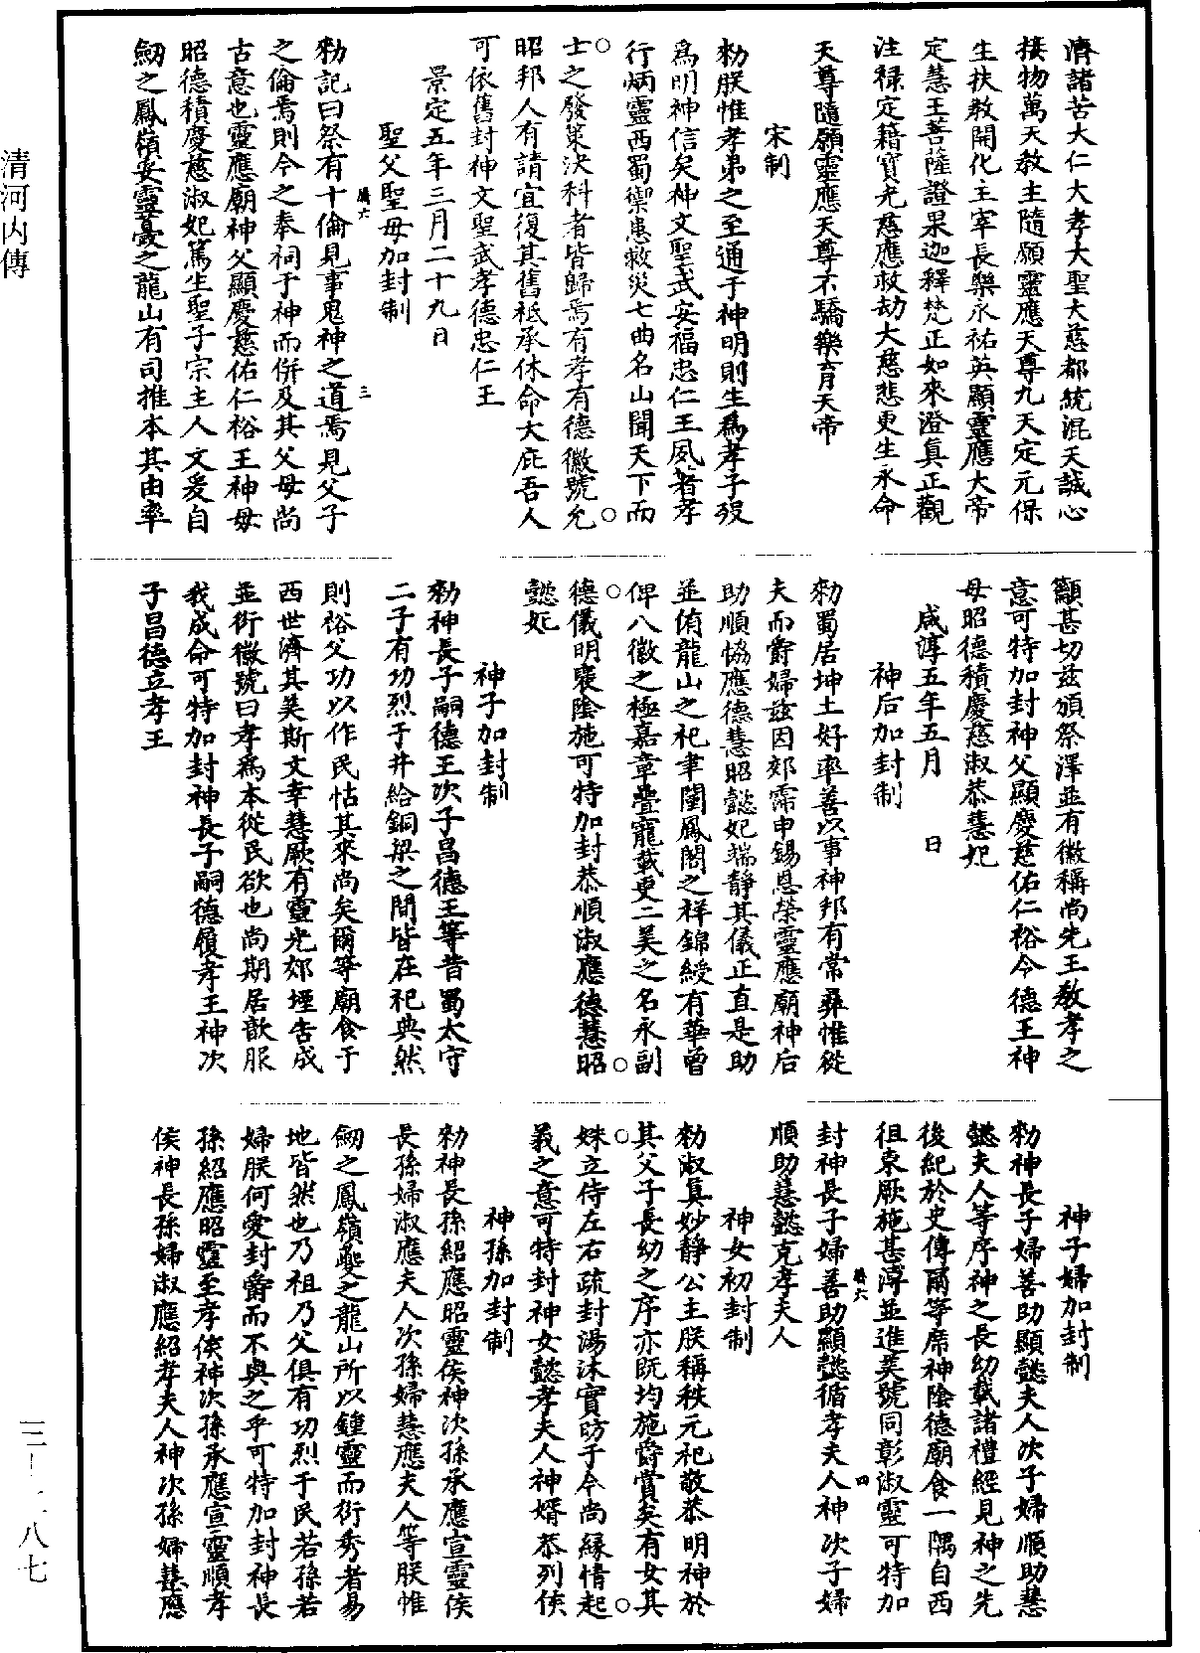 清河內傳
濟諸苦大仁大孝大聖大慈都統混天誠心
接物萬天教主隨願靈應天尊九天定元保
生扶教開化主宰長樂永祐英顯靈應大帝
定慧王菩薩證果迦釋梵正如來澄真正觀
注祿定籍寶光慈應救劫大慈悲更生永命
天尊隨願靈應天尊不驕樂育天帝
宋制
勑朕惟孝弟之至通于神明則生為孝子歿
為明神信矣神文聖武安福忠仁王夙著孝
行炳靈西蜀禦患救災七曲名山聞天下而
士之發策決科者皆歸焉有孝有德徽號允
昭邦人有請宜復其舊祗承休命大庇吾人
可依舊封神文聖武孝德忠仁王
景定五年三月二十九日
聖父聖母加封制
勑記曰祭有十倫見事鬼神之道焉見父子
之倫焉則今之奉祠于神而併及其父母尚
古意也靈應廟神父顯慶慈佑仁裕王神母
昭德積慶慈淑妃篤生聖子宗主人文爰自
劒之鳳嶺妥靈夔之龍山有司推本其由率
籲甚切茲頒祭澤並有徽稱尚先王教孝之
意可特加封神父顯慶慈佑仁裕令德王神
母昭德積慶慈淑恭慧妃
咸淳五年五月　日
神后加封制
勑蜀居坤土好率善以事神邦有常彞惟從
夫而爵婦茲因郊霈申錫恩榮靈應廟神后
助順協應德慧昭懿妃端靜其儀正直是助
並侑龍山之祀聿闡鳳閣之祥錦綬有華曾
俾八徽之極嘉章疊寵載更二美之名永副
德儀明褒陰施可特加封恭順淑應德慧昭
懿妃
神子加封制
勑神長子嗣德王次子昌德王等昔蜀太守
二子有功烈于井給銅梁之間皆在祀典然
則裕父功以作民怙其來尚矣爾等廟食于
西世濟其美斯文幸慧厥有靈光郊堙告成
並衍徽號曰孝為本從民欲也尚期居歆服
我成命可特加封神長子嗣德履孝王神次
子昌德立孝王
神子婦加封制
勑神長子婦善助顯懿夫人次子婦順助慧
懿夫人等序神之長幼載諸禮經見神之先
後紀於史傳爾等席神陰德廟食一隅自西
徂東厥施甚溥並進美號同彰淑靈可特加
封神長子婦善助顯懿循孝夫人神次子婦
順助慧懿克孝夫人
神女初封制
勑淑真妙靜公主朕稱秩元祀敬恭明神於
其父子長幼之序亦既均施爵賞矣有女其
姝立侍左右疏封湯沐實昉于今尚緣情起
義之意可特封神女懿孝夫人神婿恭列侯
神孫加封制
勑神長孫紹應昭靈侯神次孫承應宣靈侯
長孫婦淑應夫人次孫婦慧應夫人等朕惟
劒之鳳嶺夔之龍山所以鍾靈而衍秀者易
地皆然也乃祖乃父俱有功烈于民若孫若
婦朕何愛封爵而不與之乎可特加封神長
孫紹應昭靈至孝侯神次孫承應宣靈順孝
侯神長孫婦淑應紹孝夫人神次孫婦慧應